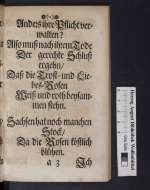 Anders ihre Pflicht ver-
walten?
Also muß nach ihrem Tode
Der gerechte Schluß
ergehn/
Daß die Trost- und Lie-
bes-Rosen
Weiß und roth beysam-
men stehn.
Sachsen hat noch manchen
Stock/
Da die Rosen köstlich
blühen.
a 3 Ich
Herzog August Bibliothek